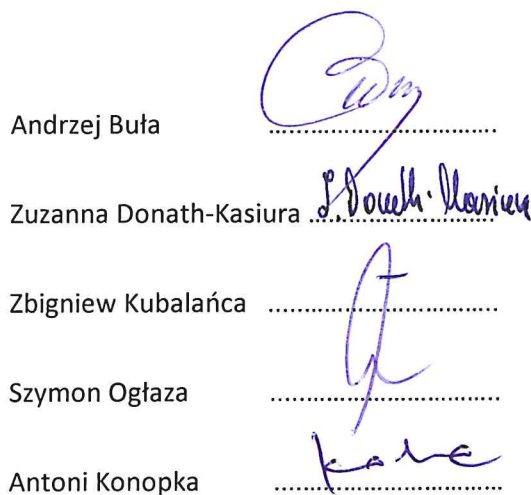 Andrzej Buła ........................................
Zuzanna Donath-Kasiura ................................. Z. Donath-Kasiura
Zbigniew Kubalańca ........................................
Szymon Ogłaza ........................................
Antoni Konopka ........................................